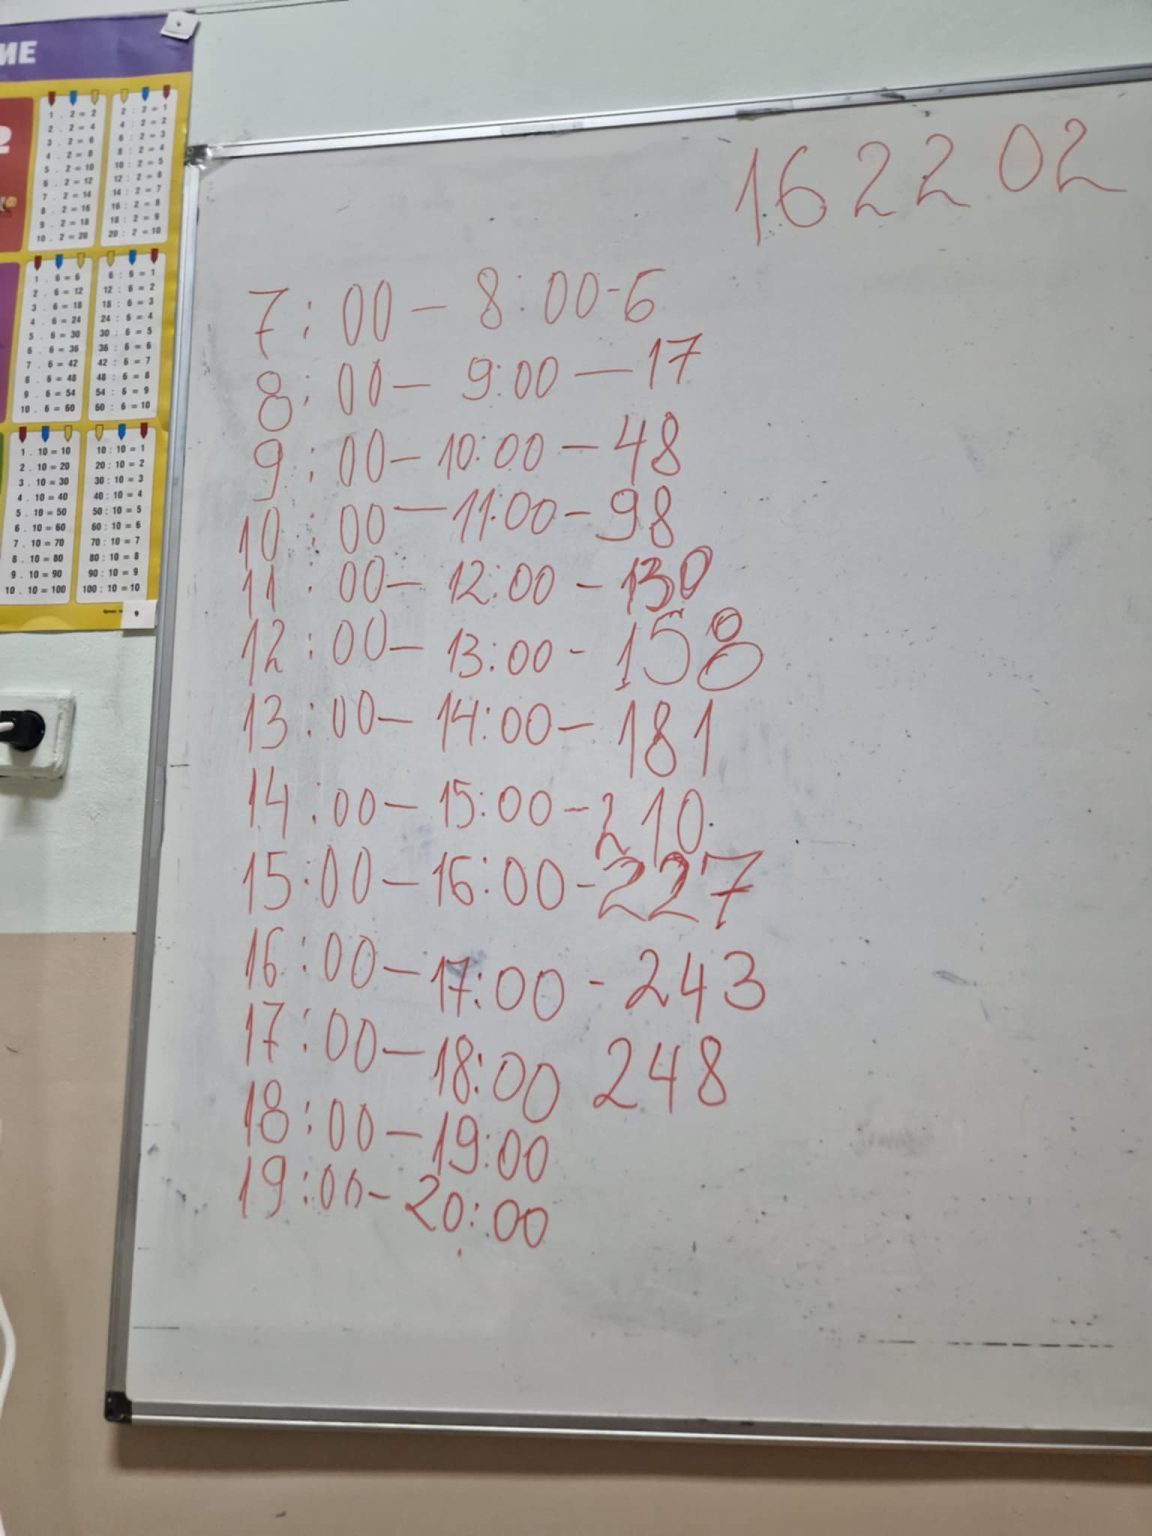 ИЕ
2
1 . 2 = 2
2 . 2 = 4
3 . 2 = 6
4 . 2 = 8
5 . 2 = 10
6 . 2 = 12
7 . 2 = 14
8 . 2 = 16
9 . 2 = 18
10 . 2 = 20
2 : 2 = 1
4 : 2 = 2
6 : 2 = 3
8 : 2 = 4
10 : 2 = 5
12 : 2 = 6
14 : 2 = 7
16 : 2 = 8
18 : 2 = 9
20 : 2 = 10
1 . 6 = 6
2 . 6 = 12
3 . 6 = 18
4 . 6 = 24
5 . 6 = 30
6 . 6 = 36
7 . 6 = 42
8 . 6 = 48
9 . 6 = 54
10 . 6 = 60
6 : 6 = 1
12 : 6 = 2
18 : 6 = 3
24 : 6 = 4
30 : 6 = 5
36 : 6 = 6
42 : 6 = 7
48 : 6 = 8
54 : 6 = 9
60 : 6 = 10
1 . 10 = 10
2 . 10 = 20
3 . 10 = 30
4 . 10 = 40
5 . 10 = 50
6 . 10 = 60
7 . 10 = 70
8 . 10 = 80
9 . 10 = 90
10 . 10 = 100
10 : 10 = 1
20 : 10 = 2
30 : 10 = 3
40 : 10 = 4
50 : 10 = 5
60 : 10 = 6
70 : 10 = 7
80 : 10 = 8
90 : 10 = 9
100 : 10 = 10
9
162202
7:00 – 8:00-6
8:00 – 9:00 – 17
9:00 – 10:00 – 48
10:00 – 11:00 – 98
11:00 – 12:00 – 130
12:00 – 13:00 - 158
13:00 – 14:00 – 181
14:00 – 15:00 – 210
15:00 – 16:00 - 227
16:00 – 17:00 - 243
17:00 – 18:00 248
18:00 – 19:00
19:00 – 20:00